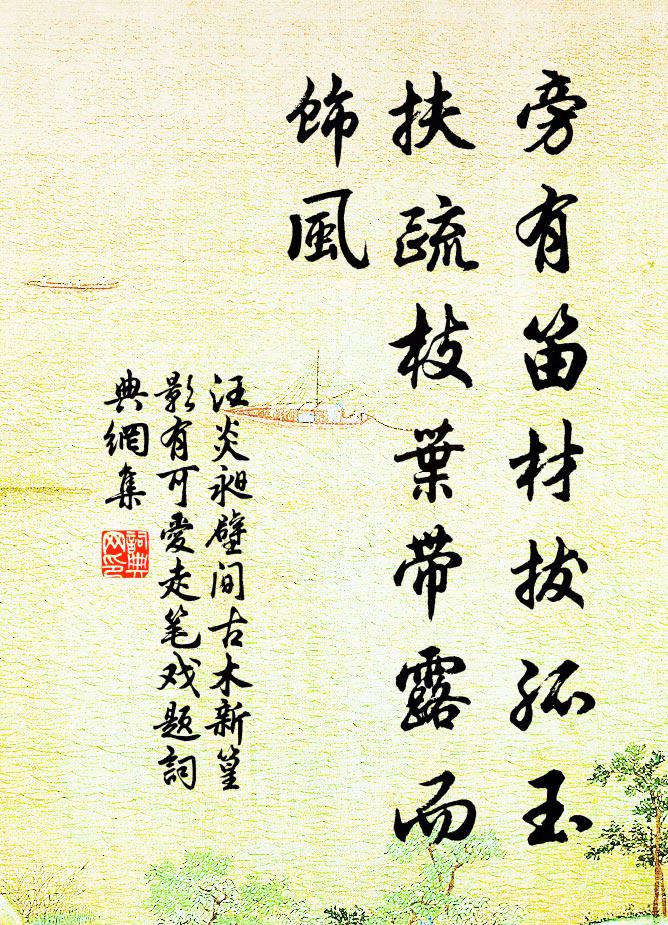 旁有笛材拔孤玉
扶疏枝葉帶露而
飾風
汪炎昶壁间古木新篁
影有可愛走笔戏题詞
典網集
詞典
网印